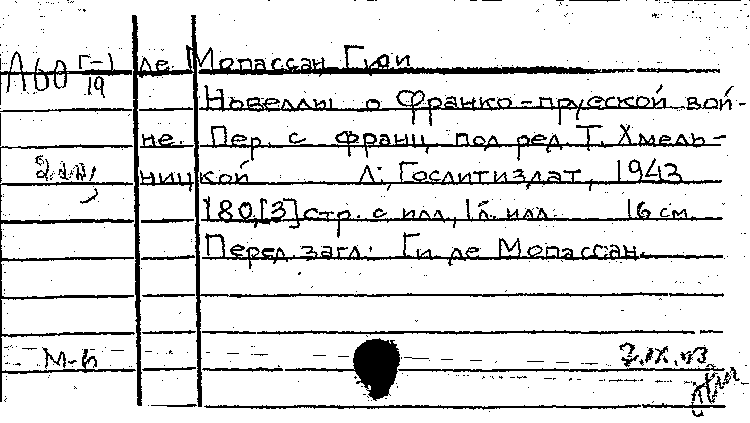 А60 Г-1/19 де Мопассан Гюи
Новеллы о Франко-прусской вой-
не. Пер. с франц. под ред. Т. Хмель-
ницкой Л:, Гослитиздат, 1943
180,[3] стр. с илл., 1 л. илл. 16 см.
Перед загл: Ги де Мопассан.
М-й 3.IX.43